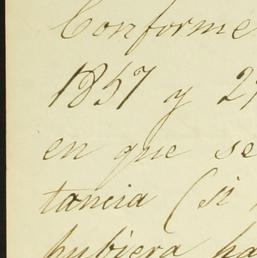 Conforme
1857 y 2
en que se
tancia (si
hubiera ha